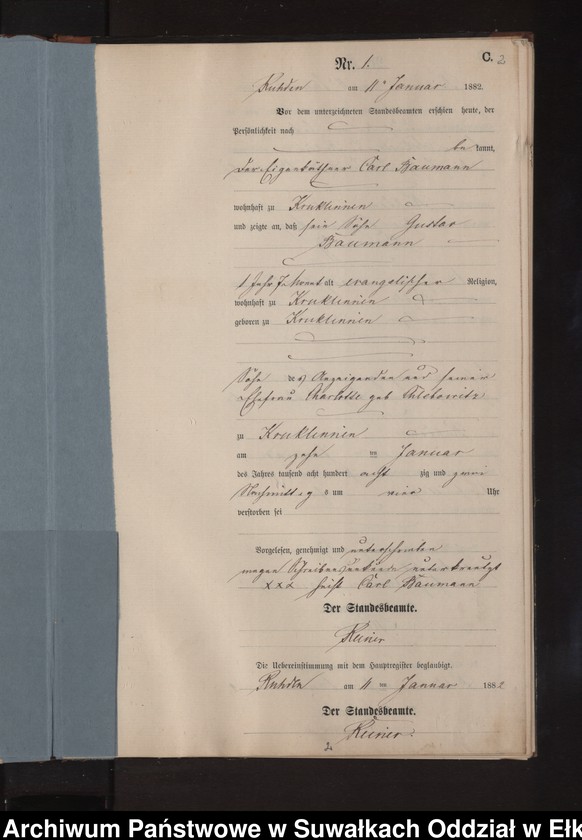 C. 2
Nr. 1.
am 11 Januar 1882.
Vor dem unterzeichneten Standesbeamten erschien heute, der
Persönlichkeit nach
be kannt,
der Eigenthümer Carl Baumann
wohnhaft zu Kruklinnen
und zeigte an, daß sein Sohn Gustav
Baumann
alt evangelischer Religion,
wohnhaft zu Kruklinnen
geboren zu Kruklinnen
Sohn des Anzeigenden und seiner
Ehefrau Charlotte geb
zu Kruklinnen
am zehn ten Januar
des Jahres tausend acht hundert acht zig und zwei
Nachmittag s um vier Uhr
verstorben sei
Vorgelesen, genehmigt und
wegen unterkreuzt
xxx Carl Baumann
Der Standesbeamte.
Die Uebereinstimmung mit dem Hauptregister beglaubigt.
am 11 ten Januar 1882
Der Standesbeamte.
2
Archiwum Państwowe w Suwałkach Oddział w Ełk